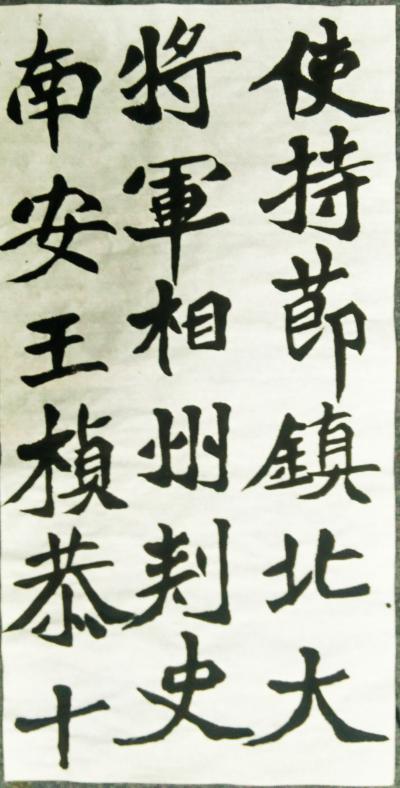 使持節鎮北大
將軍相州刺史
南安王楨恭十